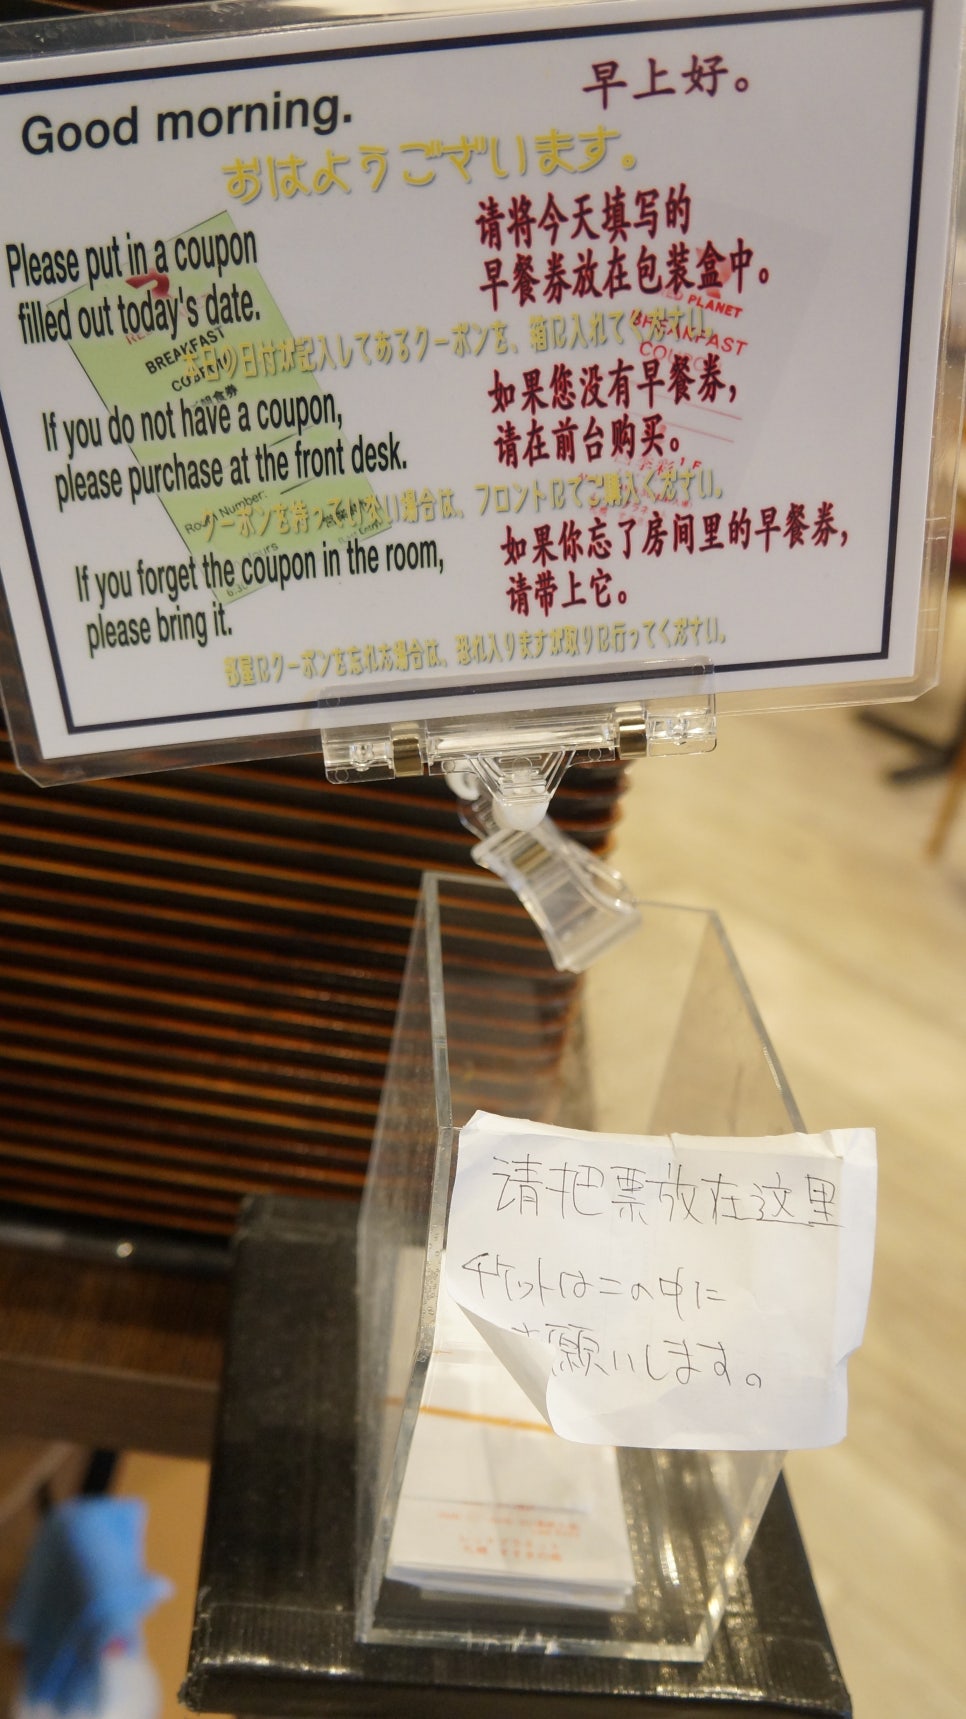 Good morning.
早上好。
おはようございます。
Please put in a coupon
filled out today's date.
请将今天填写的
早餐券放在包装盒中。
本日の日付が記入してあるクーポンを、箱に入れてください。
If you do not have a coupon,
please purchase at the front desk.
如果您没有早餐券，
请在前台购买。
クーポンを持っていない場合は、フロントにてご購入ください。
If you forget the coupon in the room,
please bring it.
如果你忘了房间里的早餐券，
请带上它。
部屋にクーポンを忘れた場合は、恐れ入りますが取りに行ってください。
BREAKFAST
朝食券
Room Number:
RED PLANET
BREAKFAST
请把票放在这里
チケットはこの中に
願いします。